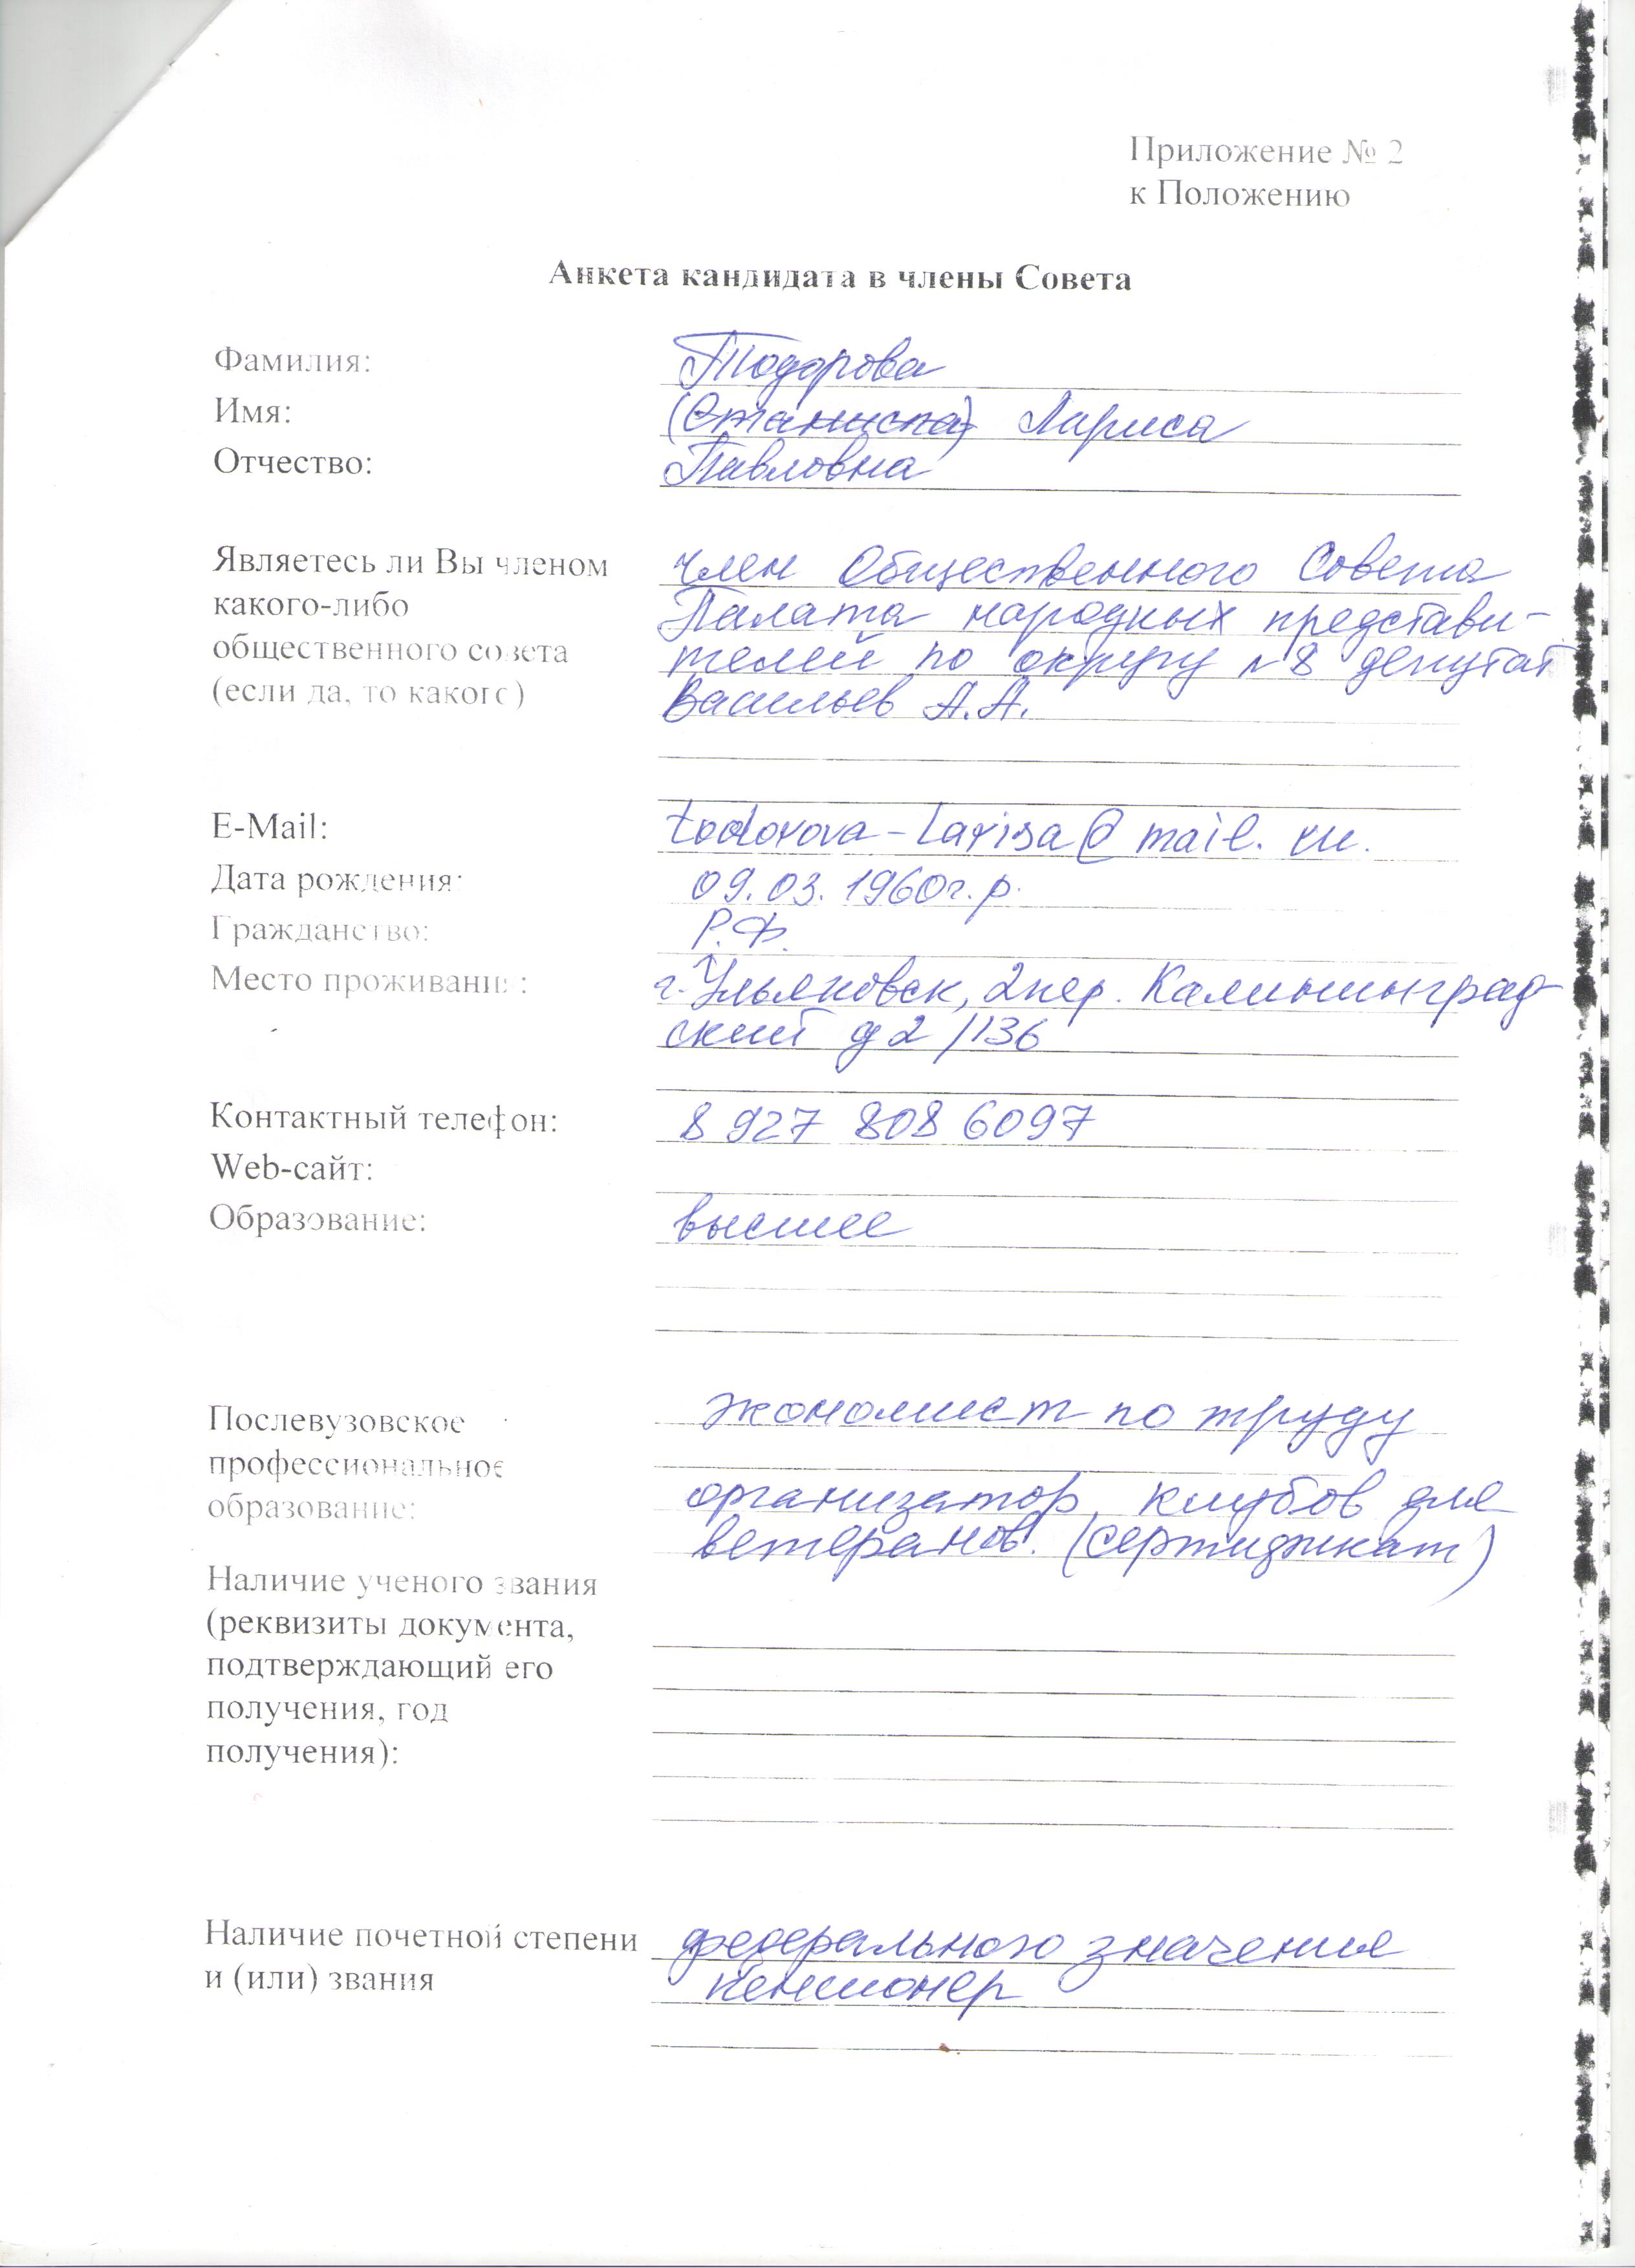 Приложение № 2
к Положению
Анкета кандидата в члены Совета
Фамилия: Тодорова
Имя: Лариса
Отчество: Павловна
Являетесь ли Вы членом член Общественного Совета
какого-либо Палата народных представи-
общественного совета телей по округу №8 депутат
(если да, то какого) Васильев А.А.
E-Mail: todorova-larisa@mail.ru.
Дата рождения: 09.03.1960г.р.
Гражданство: Р.Ф.
Место проживания: г.Ульяновск, 2пер. Калининград
ский д2/136
Контактный телефон: 8 927 808 6097
Web-сайт:
Образование: высшее
Послевузовское экономист по труду
профессиональное
образование: организатор клубов для
ветеранов. (сертификат)
Наличие ученого звания
(реквизиты документа,
подтверждающий его
получения, год
получения):
Наличие почетной степени федерального значения
и (или) звания пенсионер